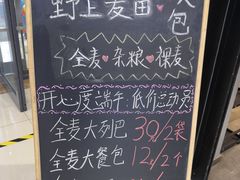 野上麦田
包
全麦❤杂粮❤裸麦
开心度端午:低价总动员
全麦大列巴 39/2袋
全麦大餐包 12/2个